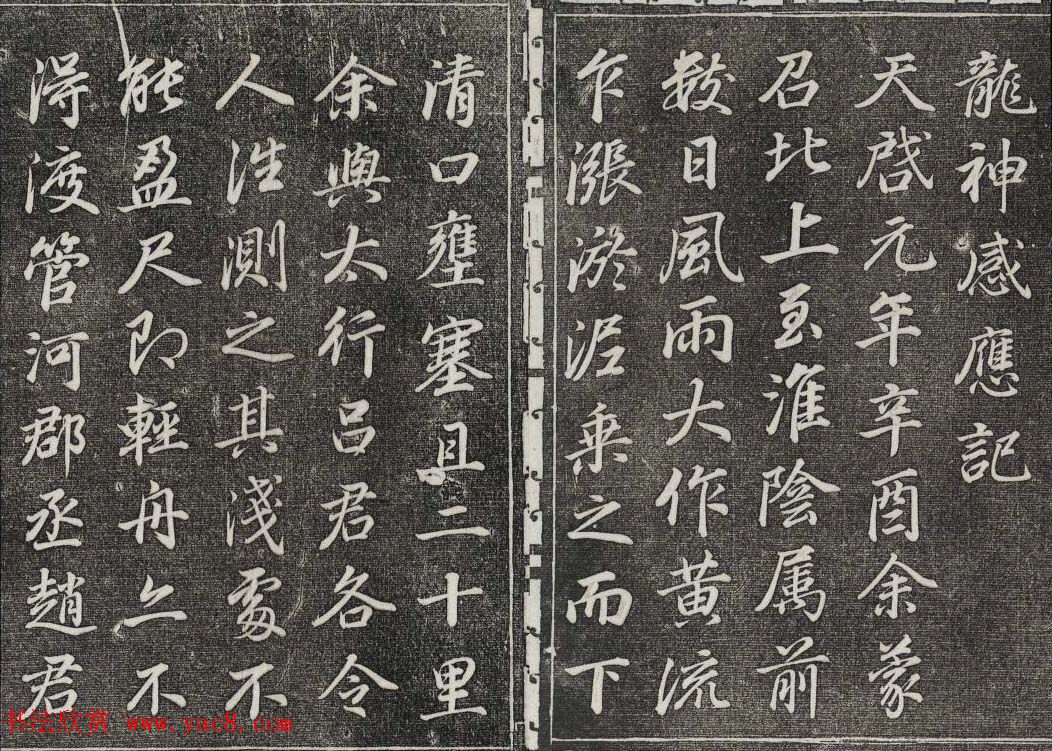 龍神感應記
天啓元年辛酉余蒙
召北上至淮陰属前
數日風雨大作黄流
乍漲淤泥乗之而下
清口壅塞且二十里
余與太行吕君各令
人往測之其淺處不
能盈尺即輕舟亦不
得渡管河郡丞趙君
书法欣赏 www.yac8.com